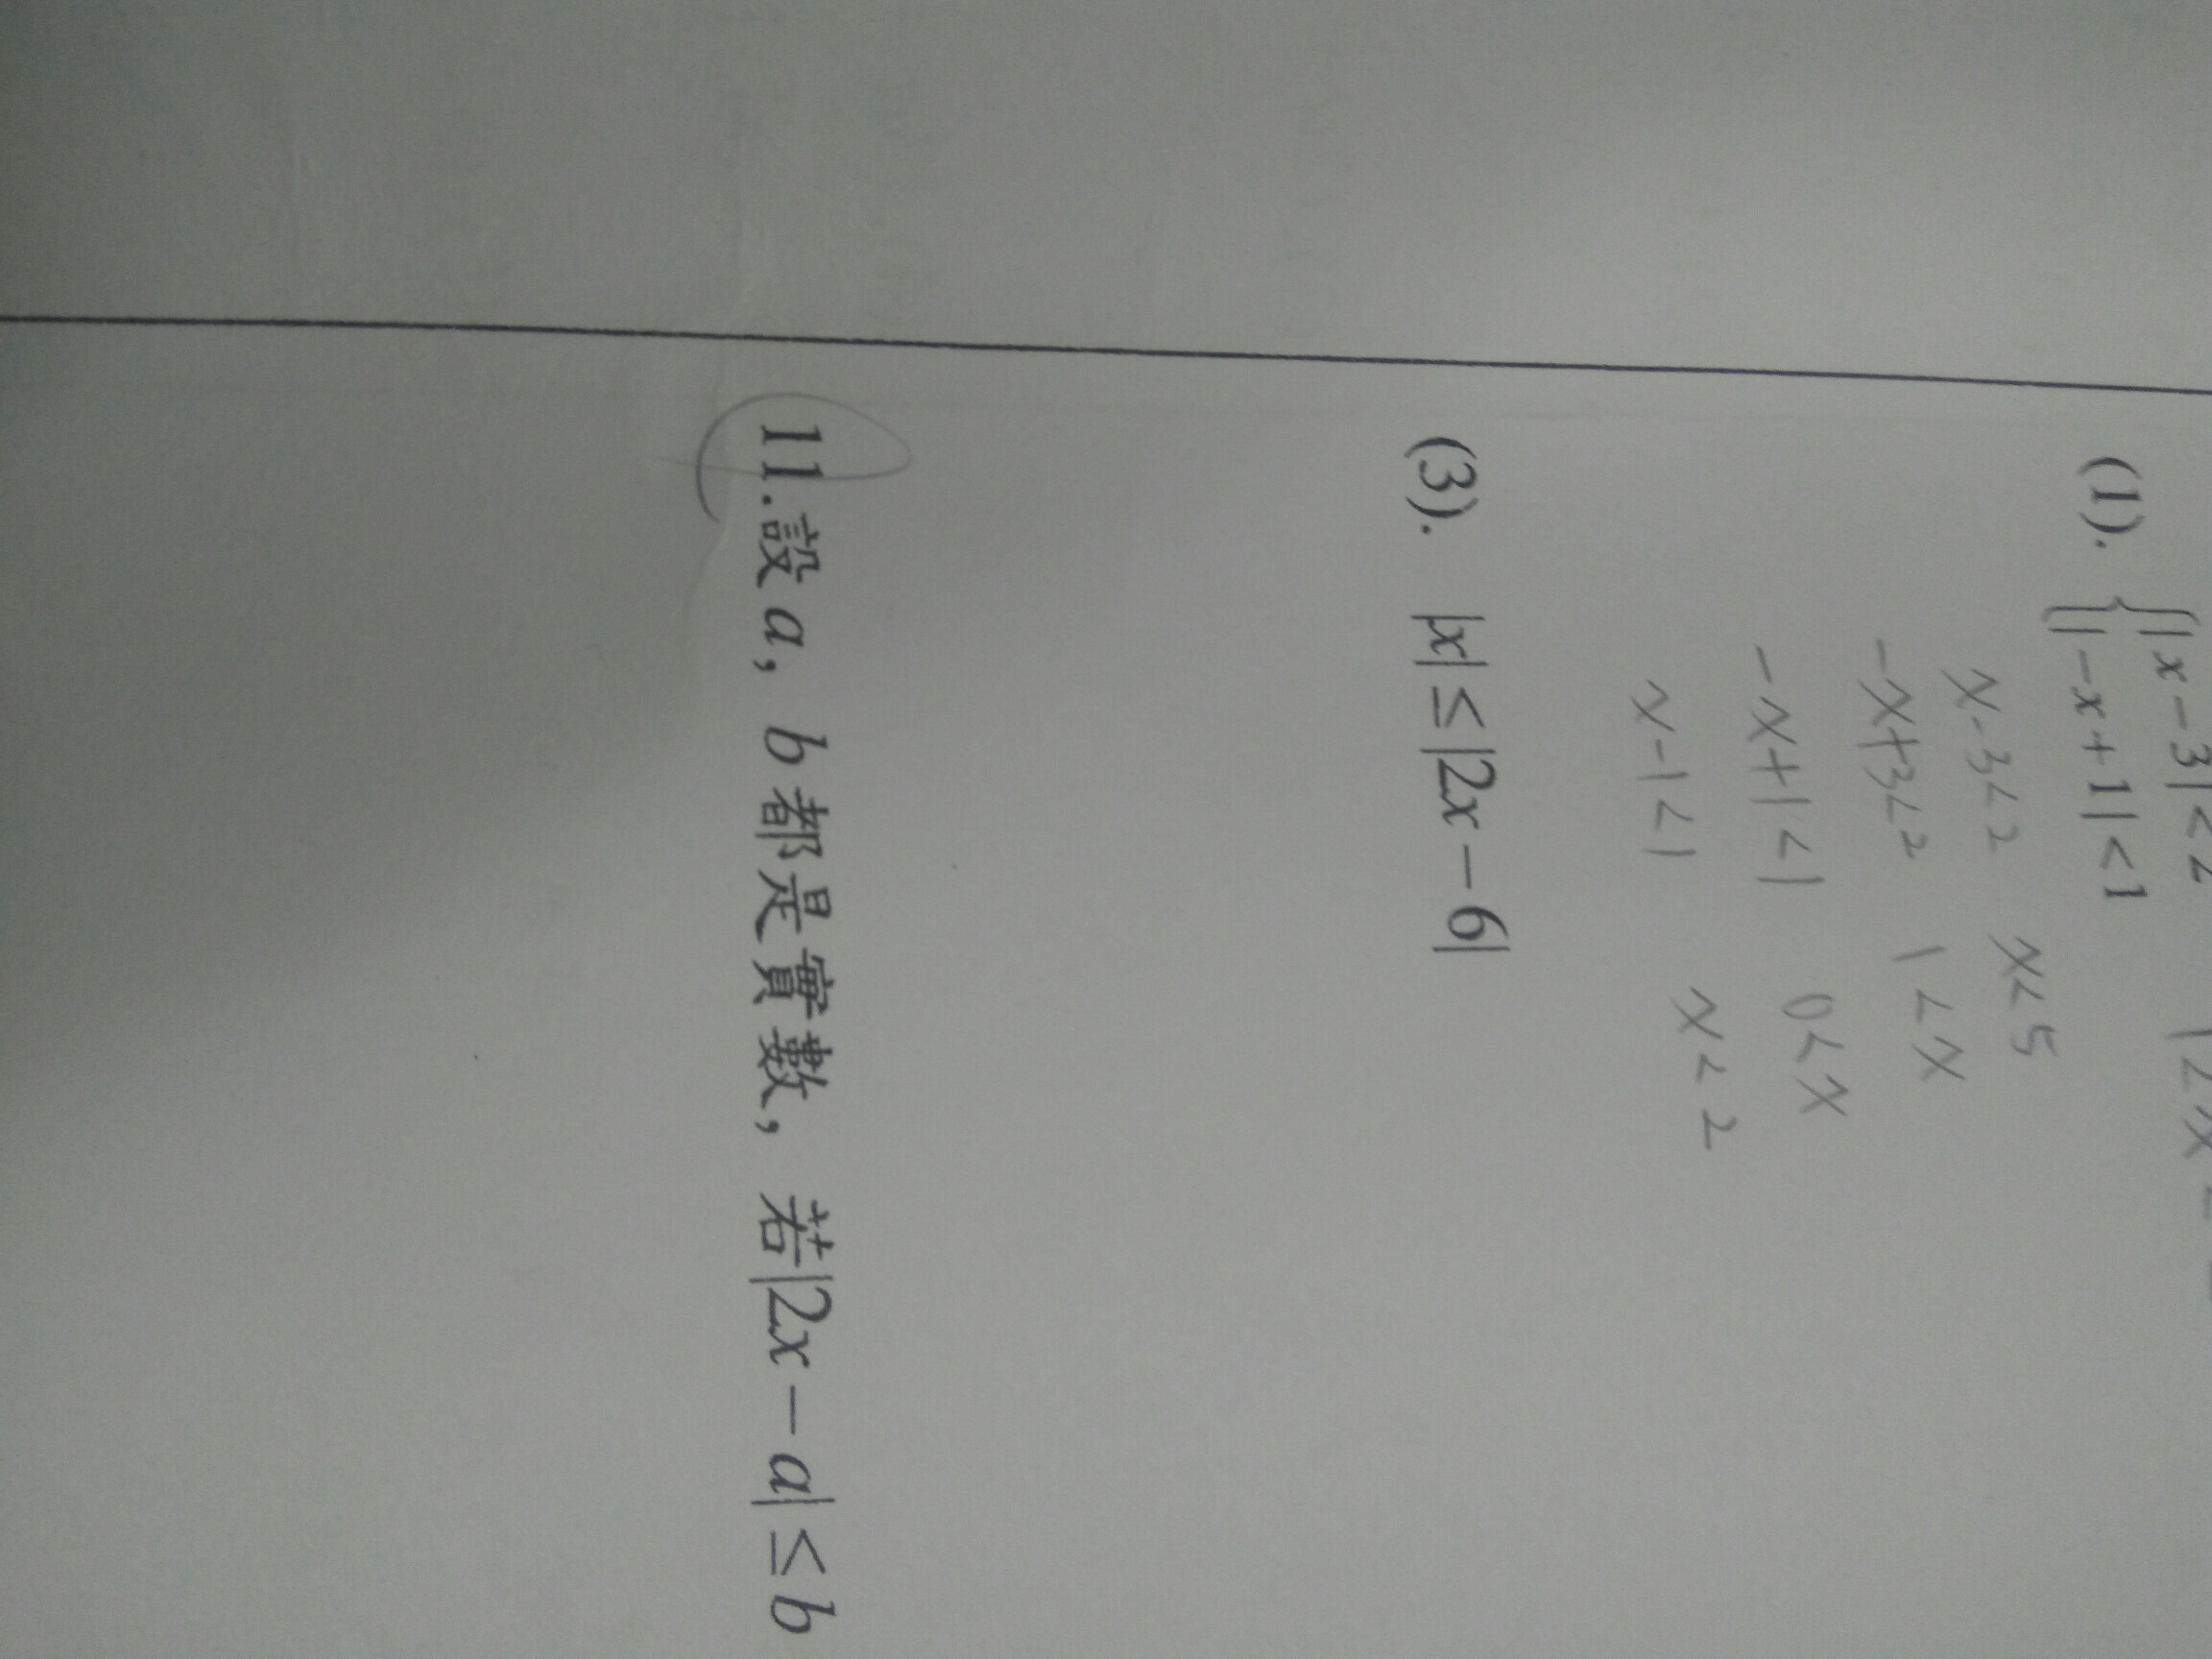 (1). { |x-3|<2
|-x+1|<1
x-3<2 x<5
-x+3<2 1<x
-x+1<1 0<x
x-1<1 x<2
(3). |x|≤|2x-6|
11.設a, b都是實數, 若|2x-a|≤b